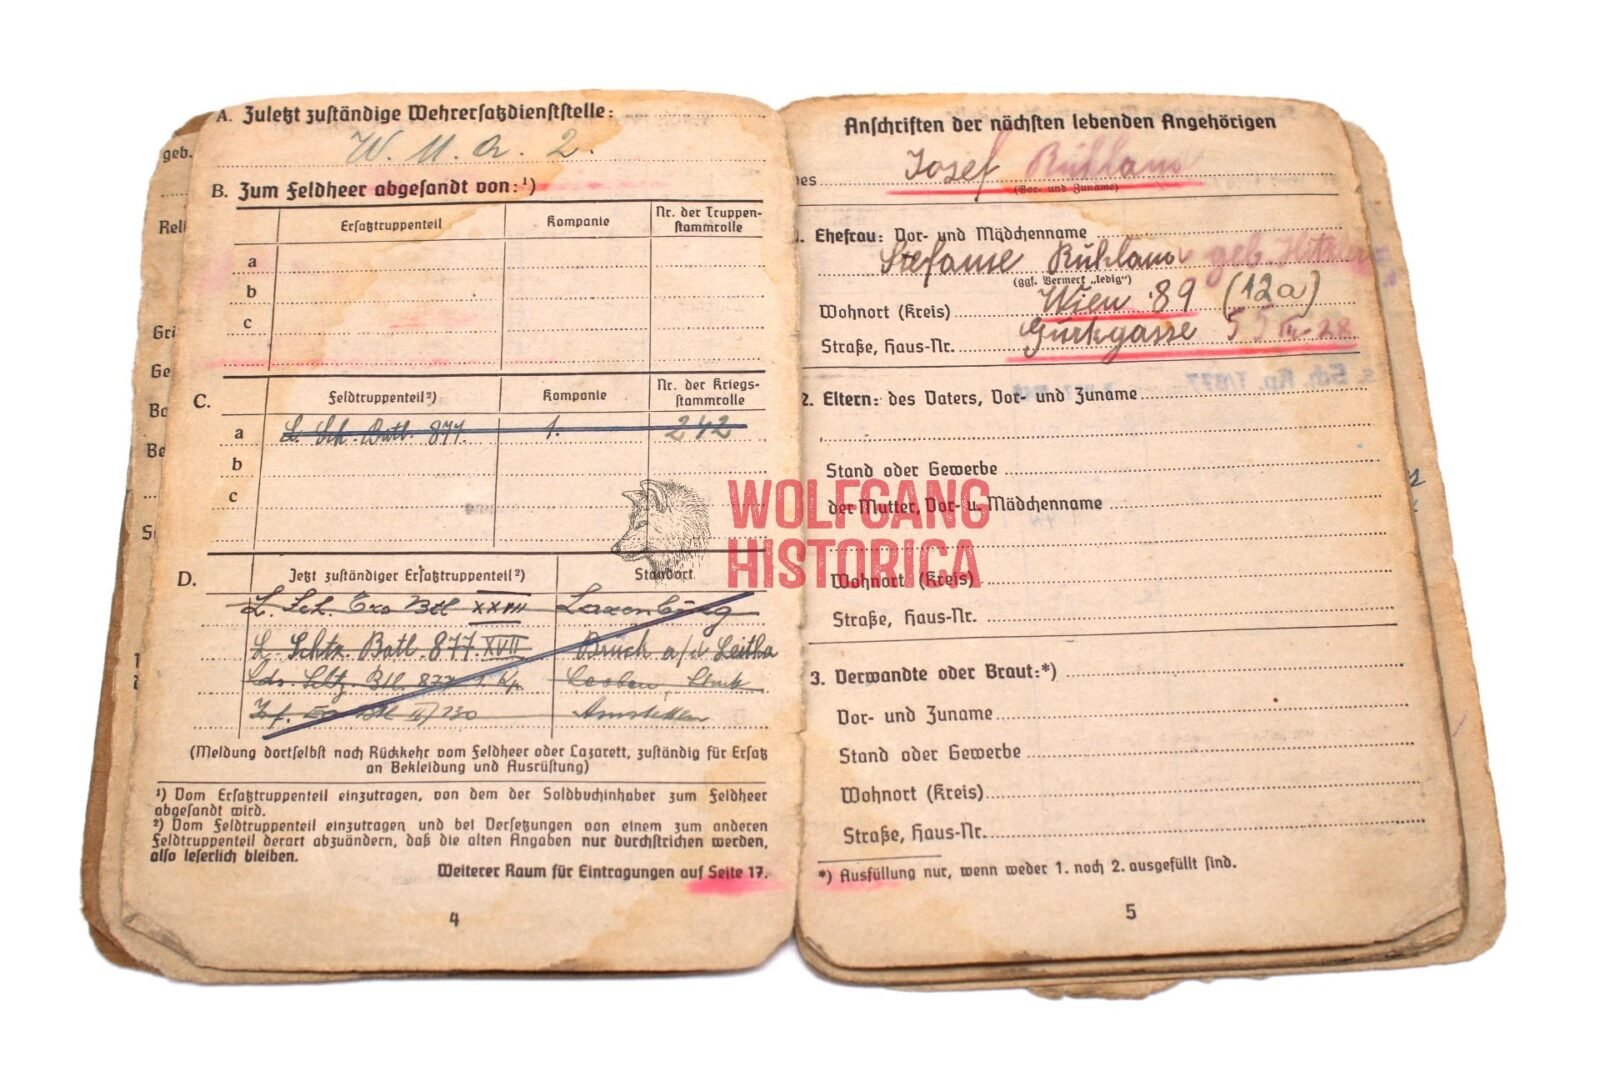 A. Zuletzt zuständige Wehrersatzdienststelle:
W. M. A. 2.
B. Zum Feldheer abgesandt von:¹)
Ersatztruppenteil Kompanie Nr. der Truppen-
stammrolle
a
b
c
C. Feldtruppenteil²) Kompanie Nr. der Kriegs-
stammrolle
a L. Sch. Batl. 877. 1. 242
b
c
D. Jetzt zuständiger Ersatztruppenteil²) Standort
L. Sch. Ers Btl XXVII Laxenburg
L. Schtz. Batl 877 XVII Bruch a/d Leitha
Lds. Schtz. Btl. 877 Kp. Leoben
Inf. Ers Btl II/130 Amstetten
(Meldung dortselbst nach Rückkehr vom Feldheer oder Lazarett, zuständig für Ersatz
an Bekleidung und Ausrüstung)
¹) Vom Ersatztruppenteil einzutragen, von dem der Soldbuchinhaber zum Feldheer
abgesandt wird.
²) Vom Feldtruppenteil einzutragen und bei Versetzungen von einem zum anderen
Feldtruppenteil derart abzuändern, daß die alten Angaben nur durchstrichen werden,
also leserlich bleiben.
Weiterer Raum für Eintragungen auf Seite 17.
4
geb.
Reli
Grö
Ge
Ba
Be
Anschriften der nächsten lebenden Angehörigen
des Josef Rühland
(Vor- und Zuname)
1. Ehefrau: Vor- und Mädchenname
Stefanie Rühland geb.
(ggf. Vermerk „ledig")
Wohnort (Kreis) Wien 89 (12a)
Straße, Haus-Nr. Gurkgasse
2. Eltern: des Vaters, Vor- und Zuname
Stand oder Gewerbe
der Mutter, Vor- u. Mädchenname
Wohnort (Kreis)
Straße, Haus-Nr.
3. Verwandte oder Braut:*)
Vor- und Zuname
Stand oder Gewerbe
Wohnort (Kreis)
Straße, Haus-Nr.
*) Ausfüllung nur, wenn weder 1. noch 2. ausgefüllt sind.
5
WOLFGANG
HISTORICA